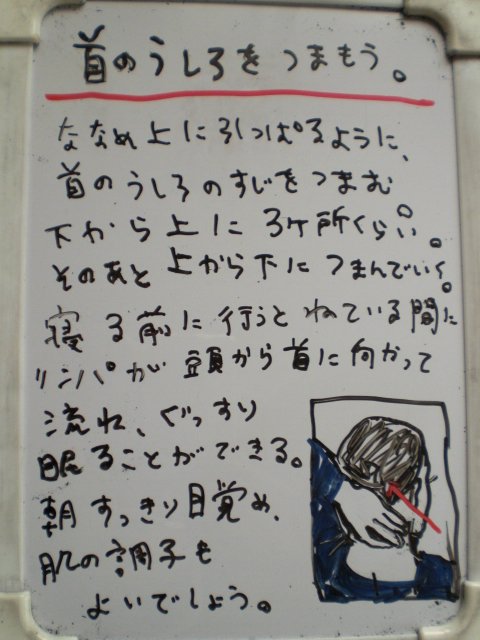 首のうしろをつまもう。
ななめ上に引っぱるように、
首のうしろのすじをつまむ
下から上に3ケ所くらい。
そのあと上から下につまんでいく。
寝る前に行うとねている間に
リンパが頭から首に向かって
流れ、ぐっすり
眠ることができる。
朝すっきり目覚め、
肌の調子も
よいでしょう。